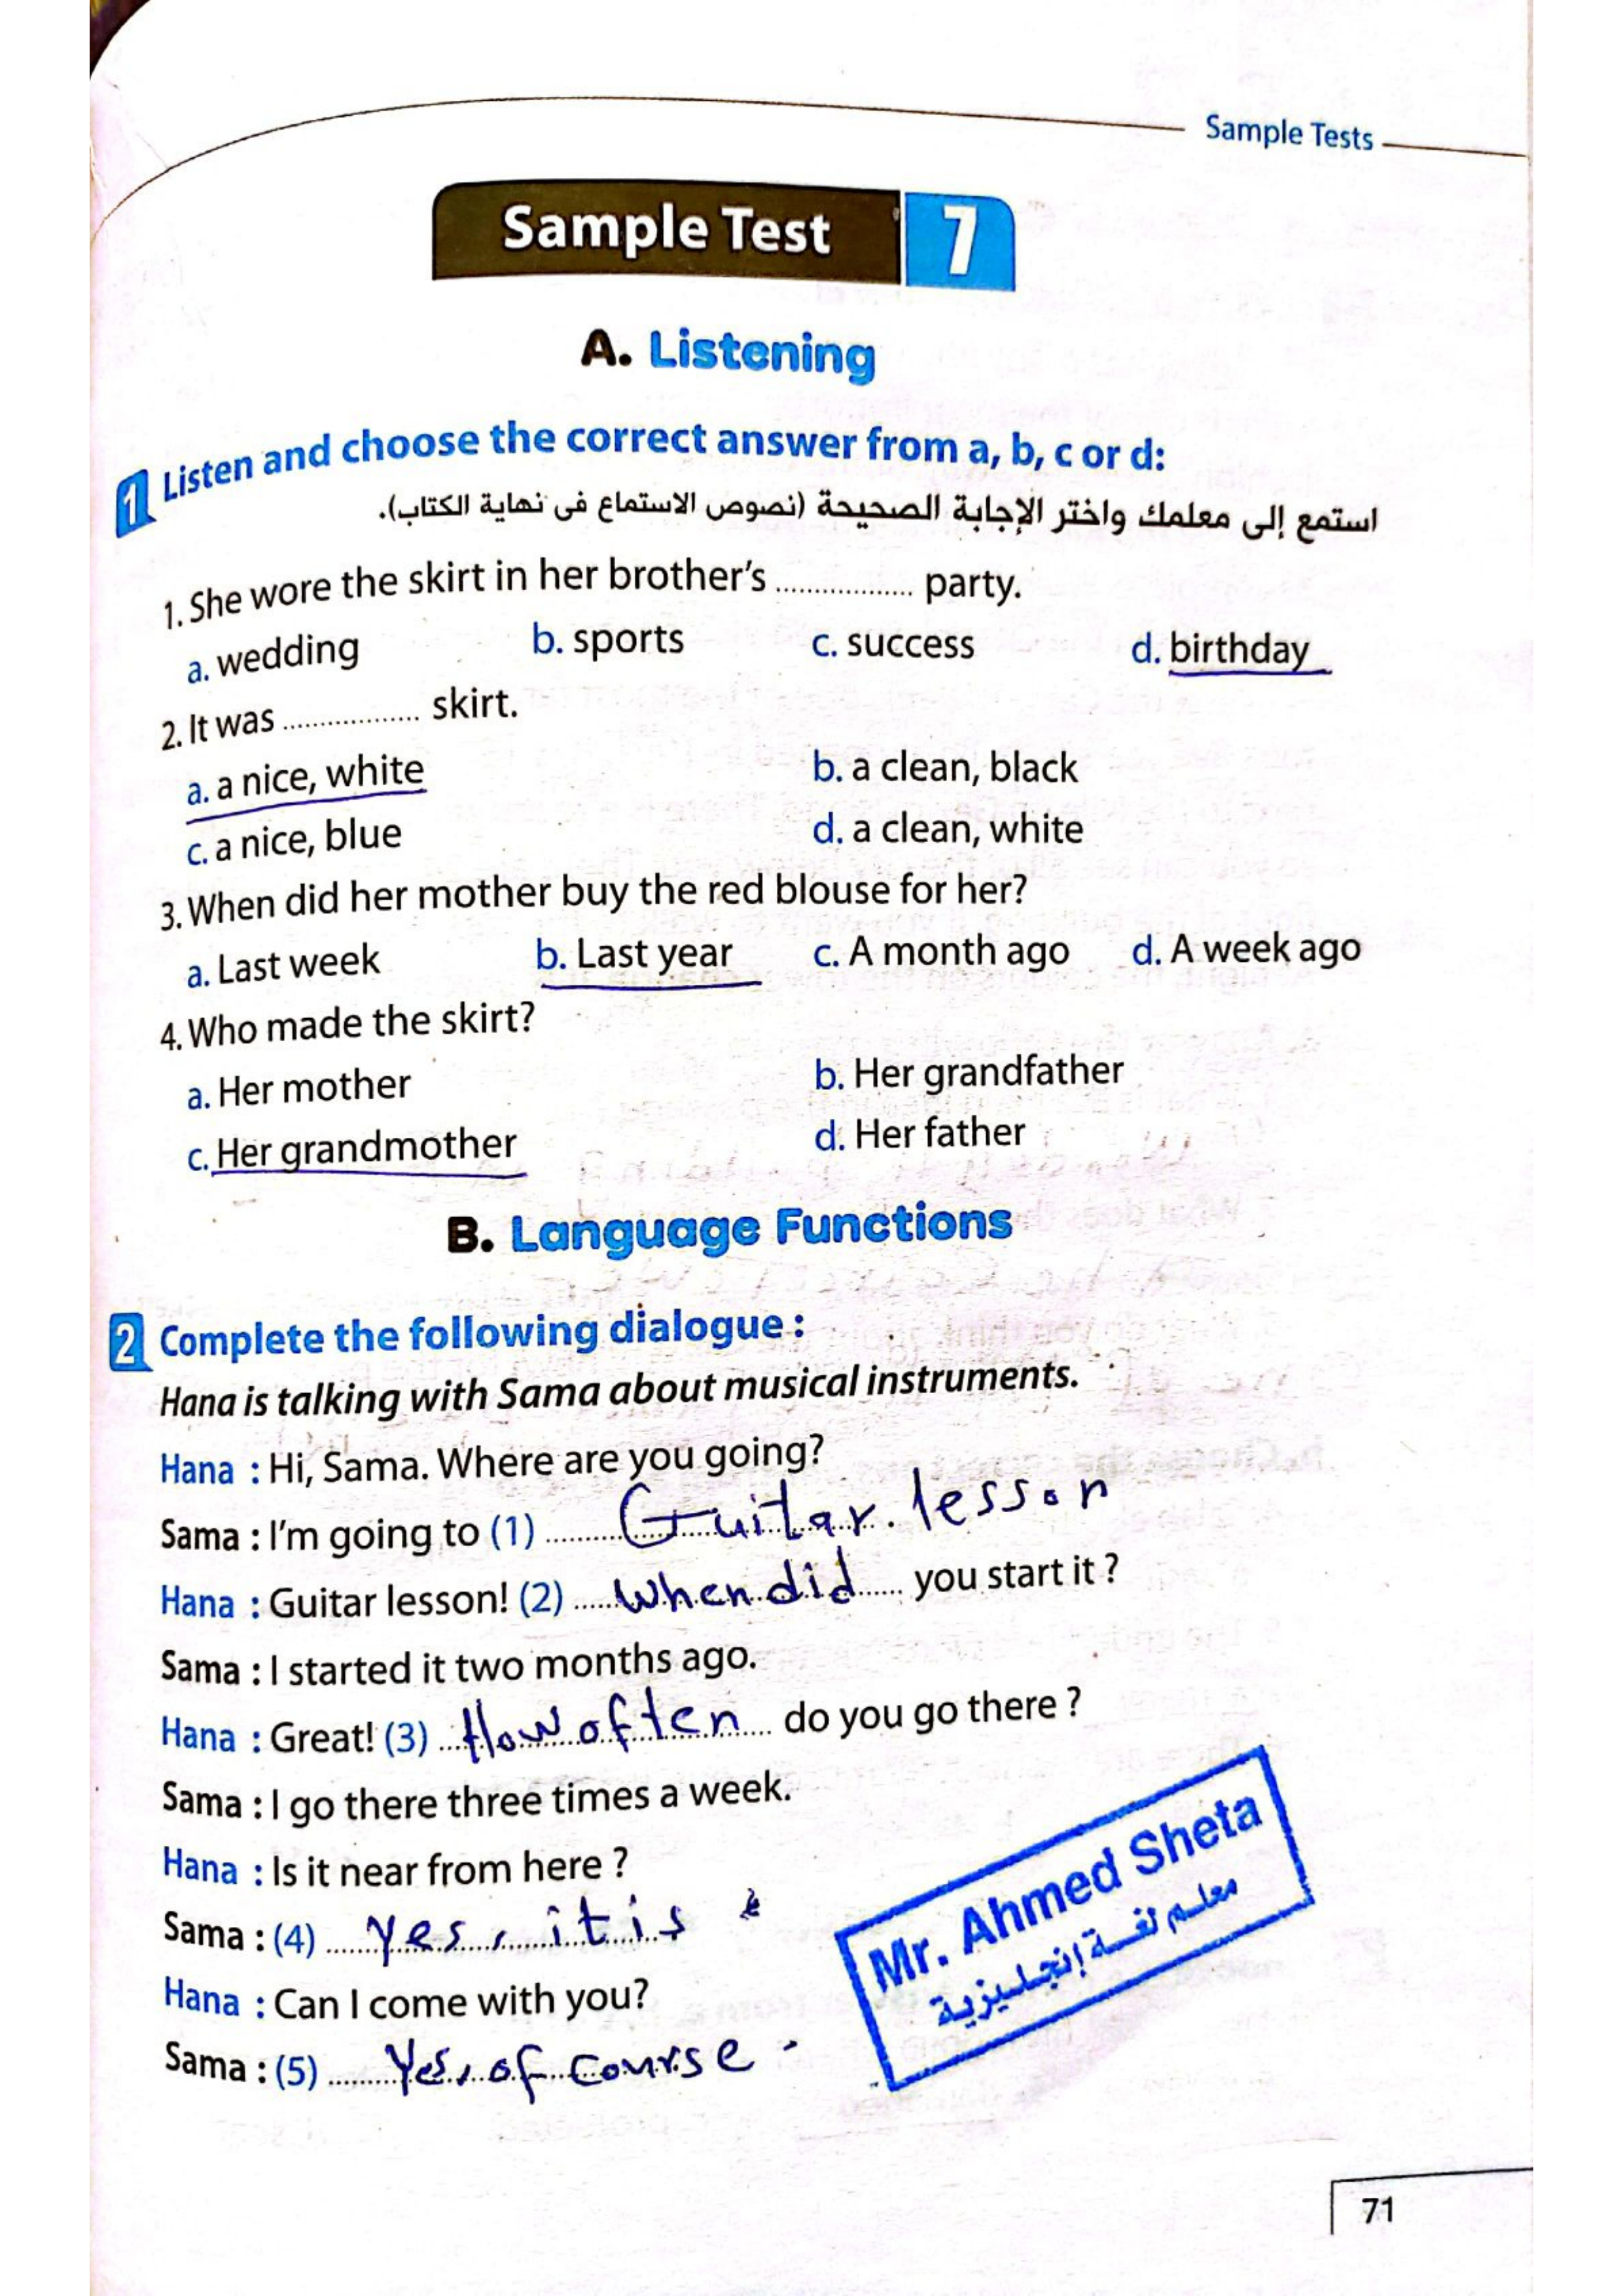 Sample Tests
Sample Test 7
A. Listening
1 Listen and choose the correct answer from a, b, c or d:
استمع إلى معلمك واختر الإجابة الصحيحة (نصوص الاستماع فى نهاية الكتاب).
1. She wore the skirt in her brother's ................. party.
a. wedding b. sports c. success d. birthday
2. It was ................. skirt.
a. a nice, white b. a clean, black
c. a nice, blue d. a clean, white
3. When did her mother buy the red blouse for her?
a. Last week b. Last year c. A month ago d. A week ago
4. Who made the skirt?
a. Her mother b. Her grandfather
c. Her grandmother d. Her father
B. Language Functions
2 Complete the following dialogue :
Hana is talking with Sama about musical instruments.
Hana : Hi, Sama. Where are you going?
Sama : I'm going to (1) Guitar lesson
Hana : Guitar lesson! (2) When did you start it ?
Sama : I started it two months ago.
Hana : Great! (3) How often do you go there ?
Sama : I go there three times a week.
Hana : Is it near from here ?
Sama : (4) Yes, it is
Hana : Can I come with you?
Sama : (5) Yes, of course.
Mr. Ahmed Sheta
معلم لغة إنجليزية
71